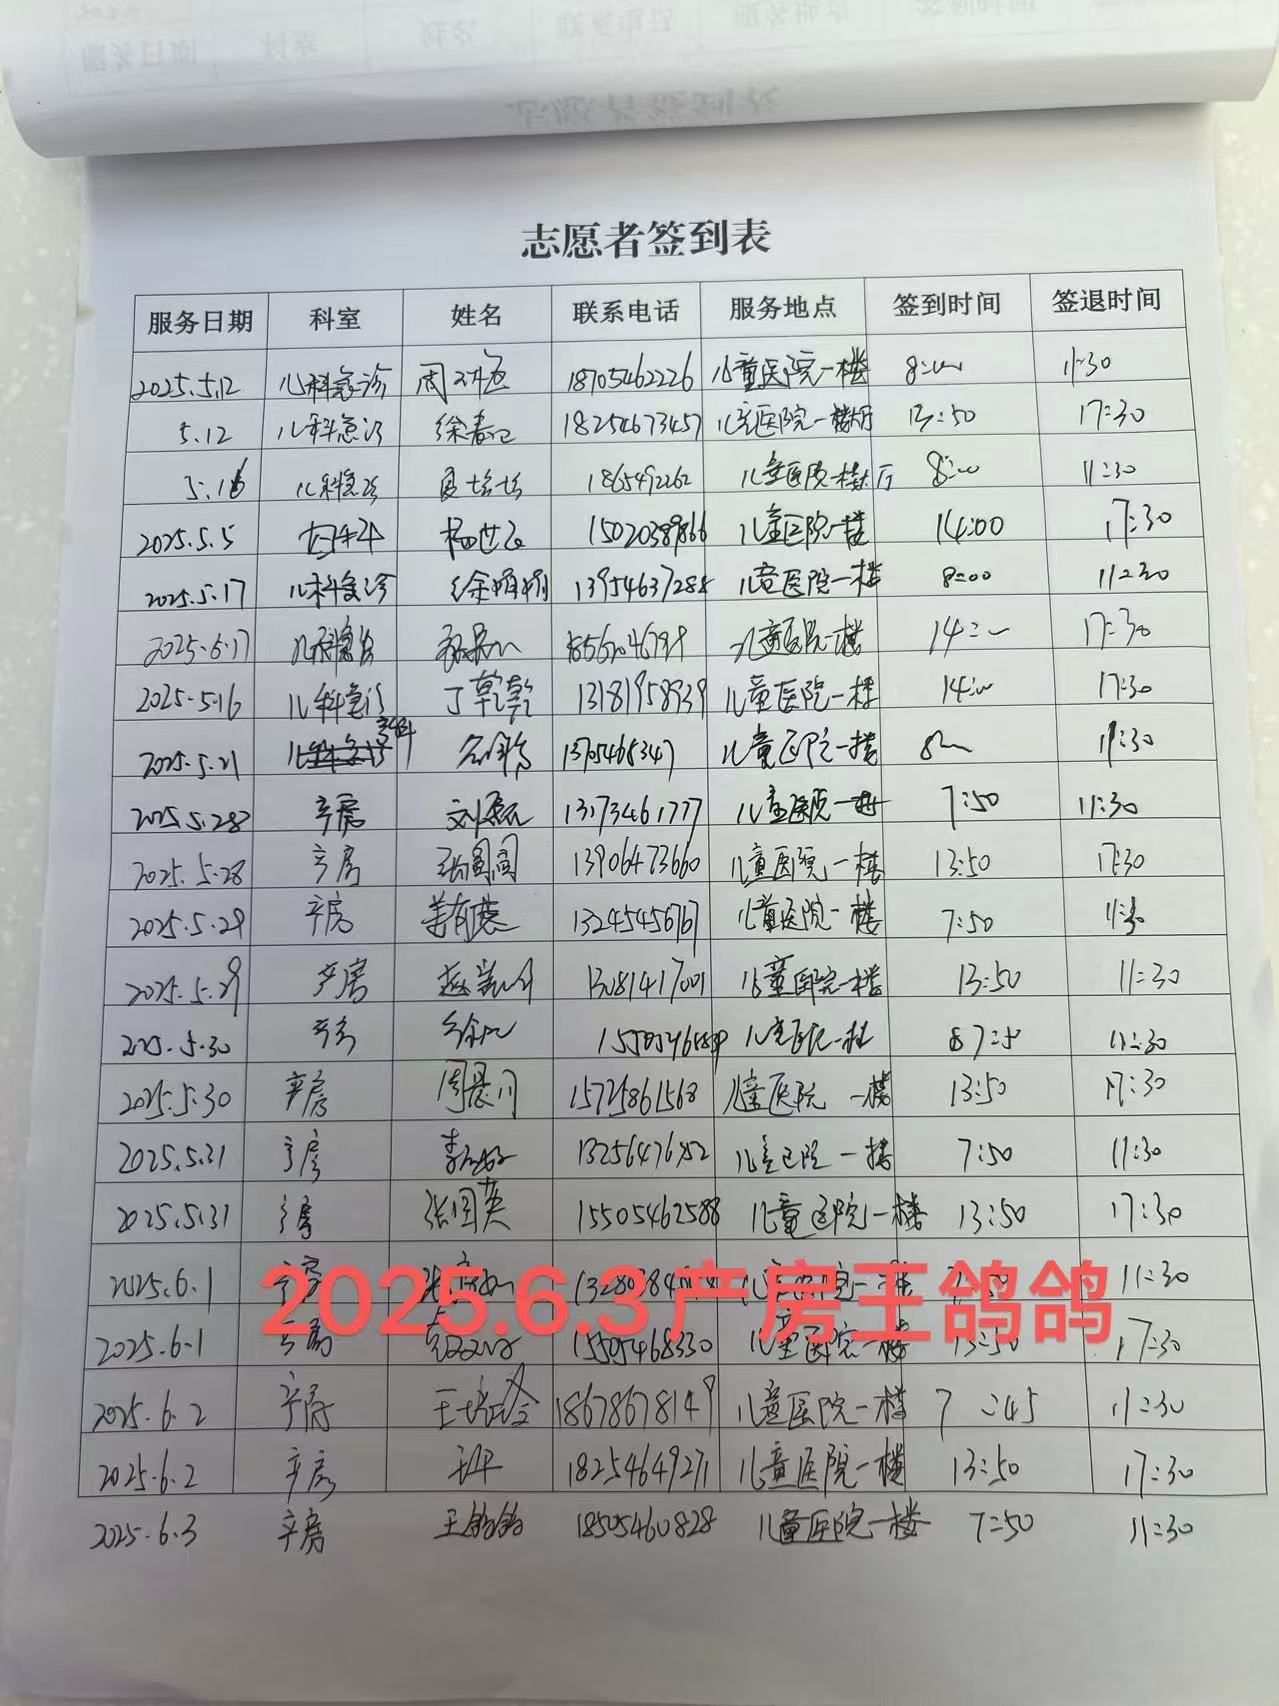 志愿者签到表
服务日期 科室 姓名 联系电话 服务地点 签到时间 签退时间
2025.5.12 儿科急诊 周 18705462226 儿童医院一楼 8:00 11:30
5.12 儿科急诊 徐春 18254673457 儿童医院一楼大厅 13:50 17:30
5.16 儿科急诊 1865492262 儿童医院一楼大厅 8:00 11:30
2025.5.5 杨世 15020389866 儿童医院一楼 14:00 17:30
2025.5.17 儿科急诊 徐娟娟 13954637288 儿童医院一楼 8:00 11:30
2025.5.17 儿科急诊 儿童医院一楼 14:00 17:30
2025.5.16 儿科急诊 丁乾乾 13181958939 儿童医院一楼 14:00 17:30
2025.5.21 13705465347 儿童医院一楼 8:00 11:30
2025.5.28 产房 刘磊 13173461777 儿童医院一楼 7:50 11:30
2025.5.28 产房 张阁阁 13906473660 儿童医院一楼 13:50 17:30
2025.5.29 产房 姜有慧 13245456767 儿童医院一楼 7:50 11:30
2025.5.29 产房 赵 13081417001 儿童医院一楼 13:50 11:30
2025.5.30 产房 徐 儿童医院一楼 7:50 11:30
2025.5.30 产房 周晨 15725861568 儿童医院 一楼 13:50 17:30
2025.5.31 产房 李 儿童医院 一楼 7:50 11:30
2025.5.31 产房 张国英 15505462588 儿童医院一楼 13:50 17:30
2025.6.1 产房 儿童医院一楼 11:30
2025.6.3产房王鸽鸽
2025.6.1 产房 15505468330 儿童医院一楼 13:50 17:30
2025.6.2 产房 王 18678678149 儿童医院一楼 7:45 11:30
2025.6.2 产房 18254649271 儿童医院一楼 13:50 17:30
2025.6.3 产房 王鸽鸽 18505460828 儿童医院一楼 7:50 11:30